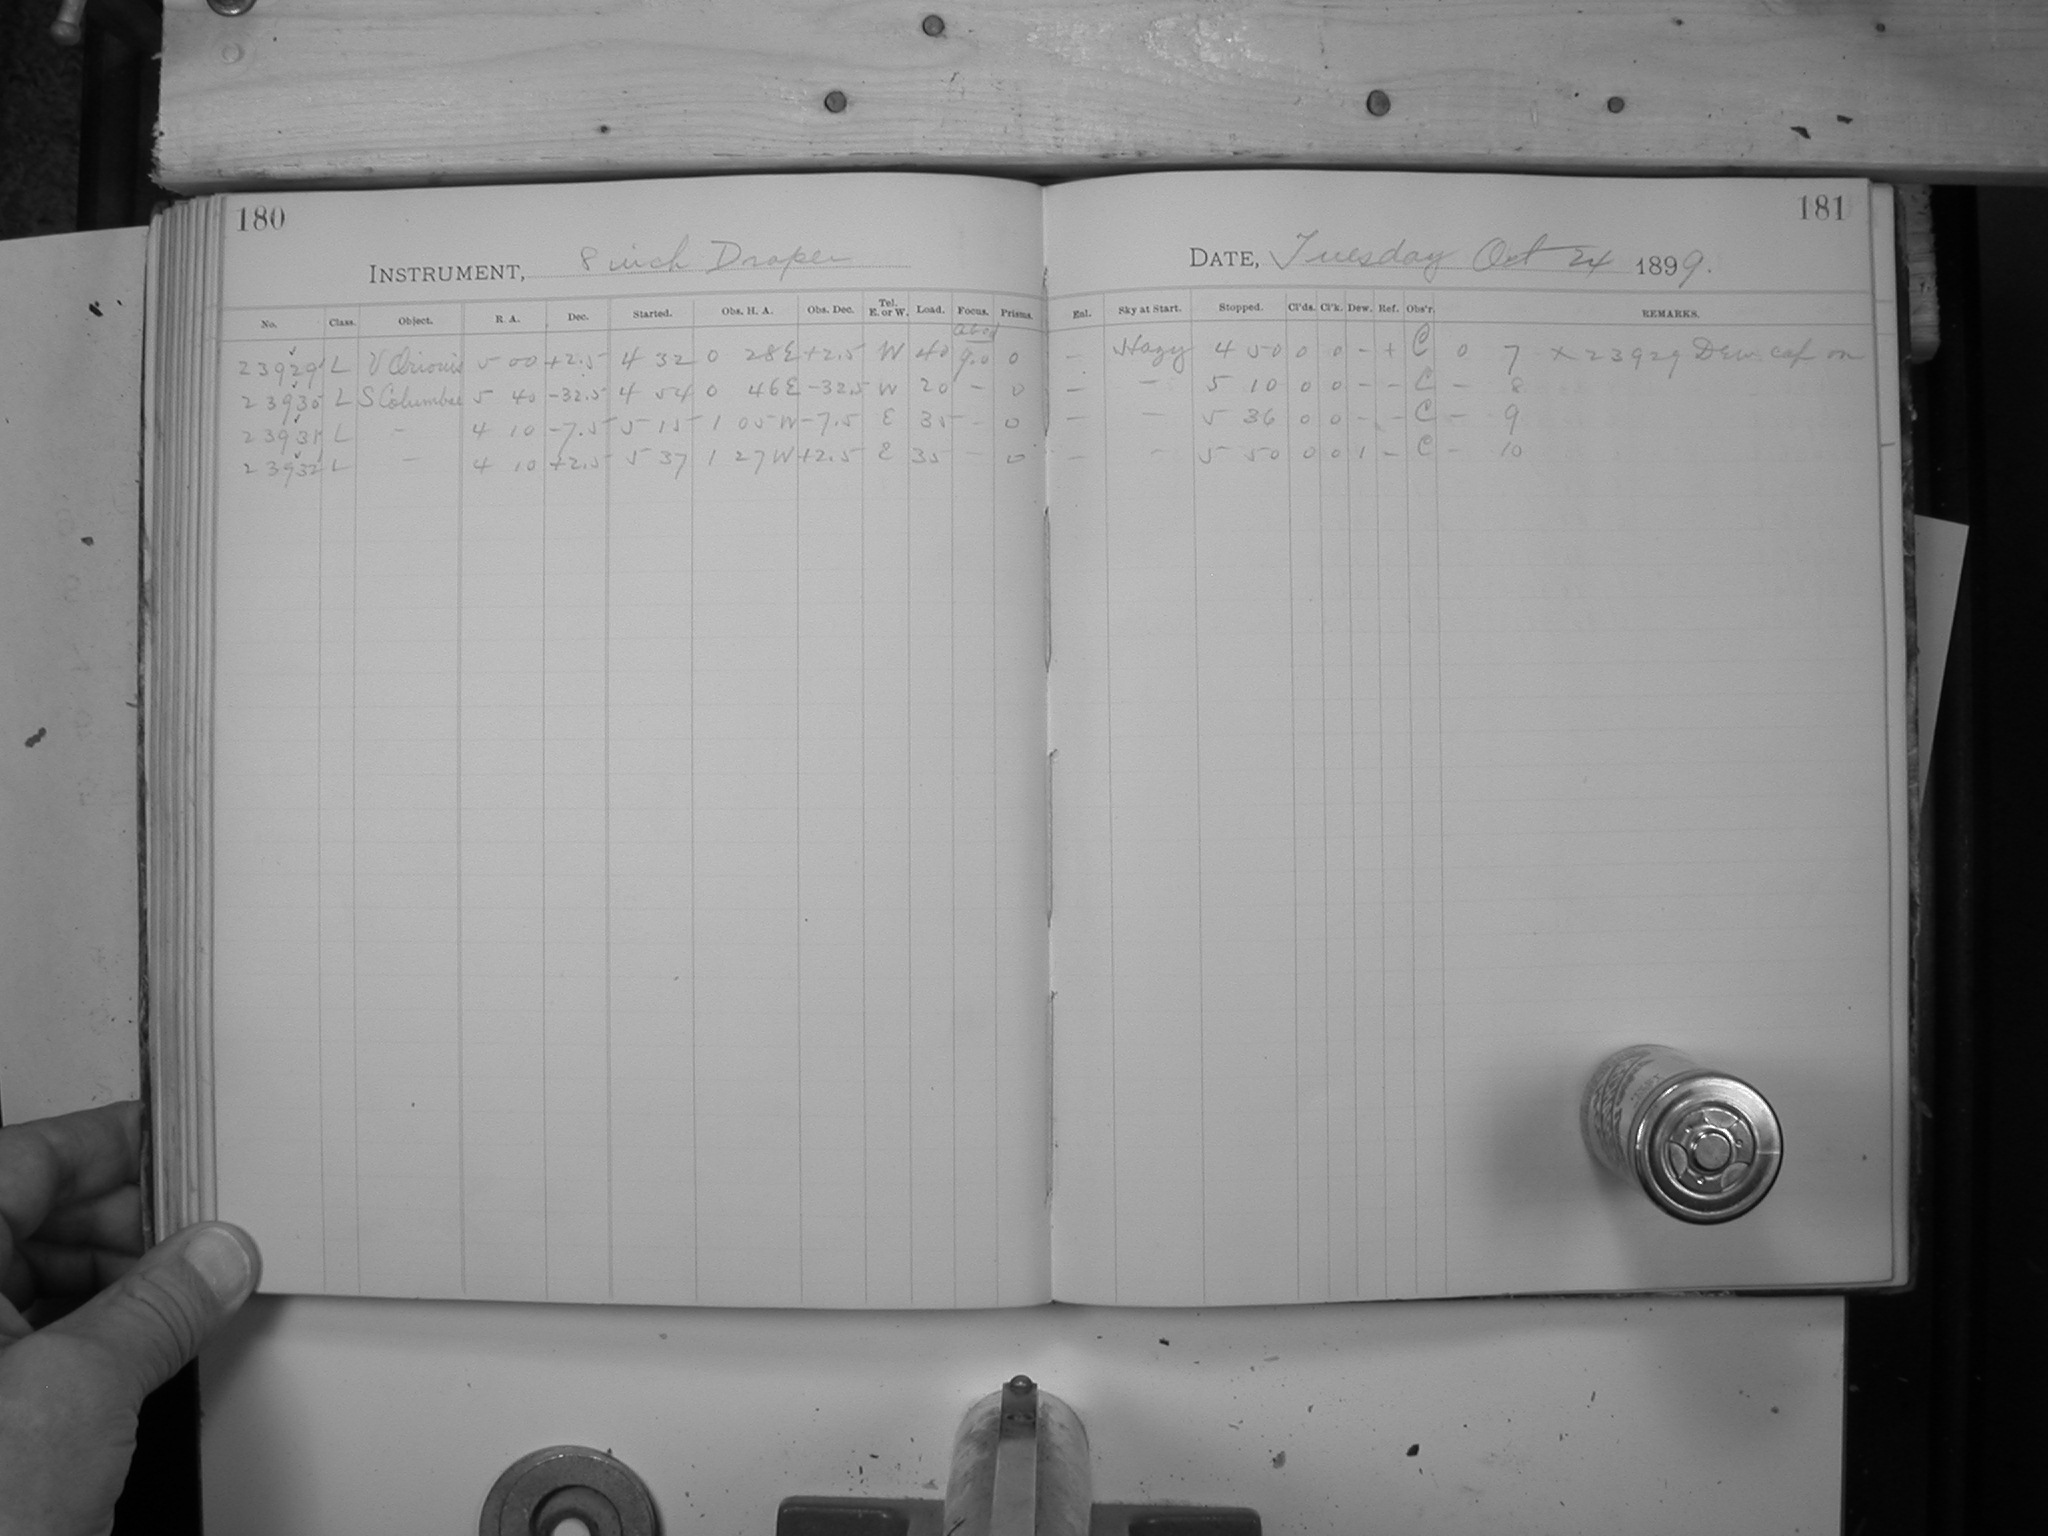 180
INSTRUMENT, 8 inch Draper
No. Class. Object. R. A. Dec. Started. Obs. H. A. Obs. Dec. Tel. E. or W. Load. Focus. Prisms.
23929 L V Orionis 5 00 +2.5 4 32 0 28 E +2.5 W 40 9.0 0
23930 L S Columbae 5 40 -32.5 4 54 0 46 E -32.5 W 20 - 0
23931 L - 4 10 -7.5 5 15 1 05 W -7.5 E 35 - 0
23932 L - 4 10 +2.5 5 37 1 27 W +2.5 E 35 - 0
181
DATE, Tuesday Oct 24 1899.
Enl. Sky at Start. Stopped. Cl'ds. Cl'k. Dew. Ref. Obs'r. REMARKS.
- Hazy 4 50 0 0 - + C 0 7 x 23929 Dew cap on
- - 5 10 0 0 - - C - 8
- - 5 36 0 0 - - C - 9
- - 5 50 0 0 1 - C - 10